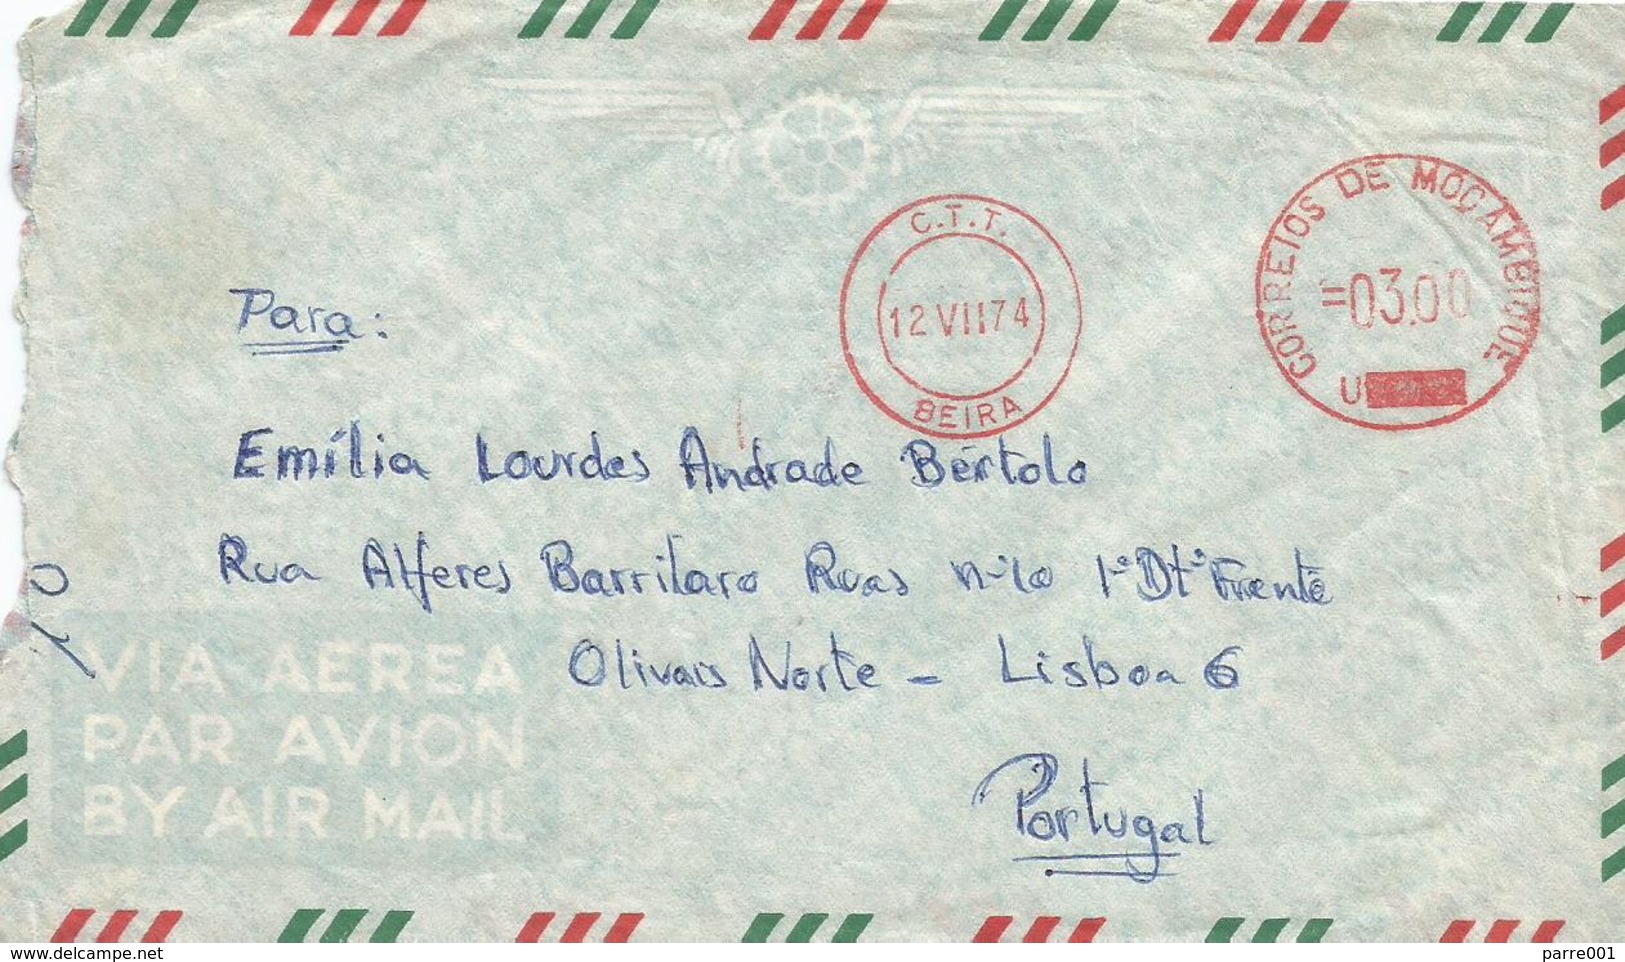 C.T.T.
12 VII 74
BEIRA
CORREIOS DE MOÇAMBIQUE
=03.00
U
Para:
Emília Lourdes Andrade Bértolo
Rua Alferes Barrilaro Ruas nº 10 1º Dtº Frente
Olivais Norte - Lisboa 6
Portugal
VIA AEREA
PAR AVION
BY AIR MAIL
www.delcampe.net
parre001